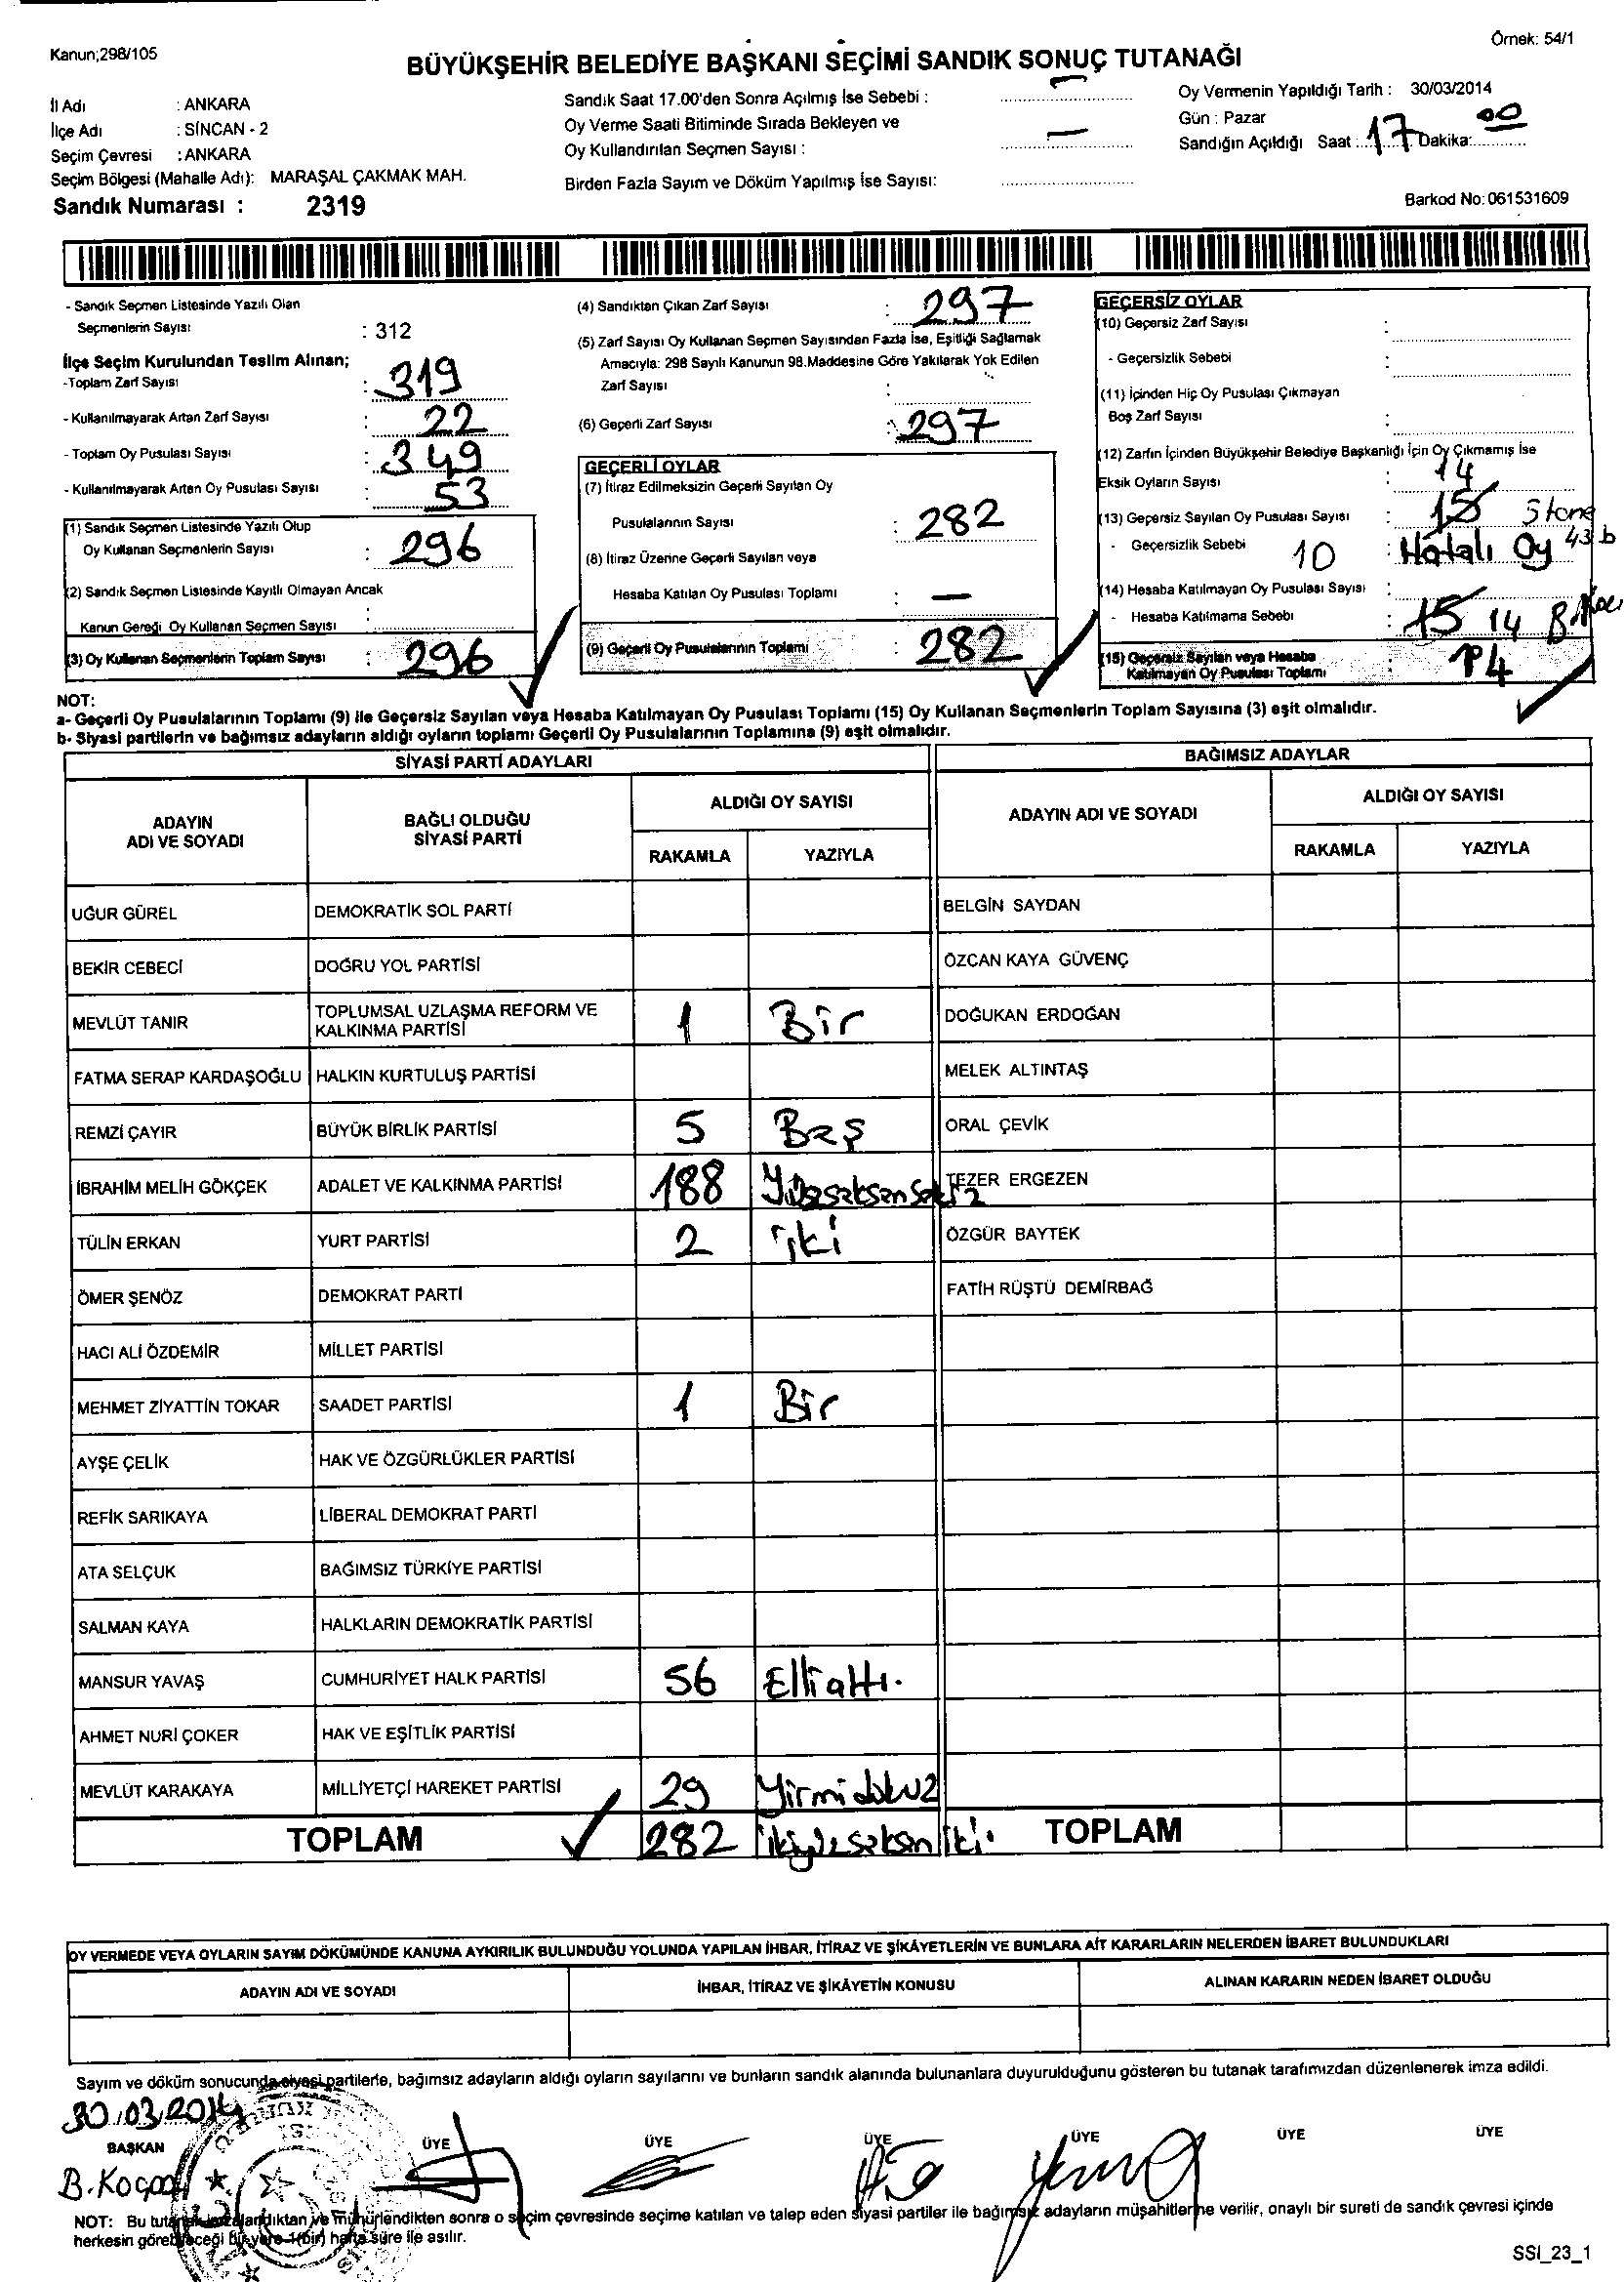 Kanun;298/105
Örnek: 54/1
BÜYÜKŞEHİR BELEDİYE BAŞKANI SEÇİMİ SANDIK SONUÇ TUTANAĞI
İl Adı : ANKARA
İlçe Adı : SİNCAN - 2
Seçim Çevresi : ANKARA
Seçim Bölgesi (Mahalle Adı): MARAŞAL ÇAKMAK MAH.
Sandık Numarası : 2319
Sandık Saat 17.00'den Sonra Açılmış İse Sebebi : —
Oy Verme Saati Bitiminde Sırada Bekleyen ve
Oy Kullandırılan Seçmen Sayısı : —
Birden Fazla Sayım ve Döküm Yapılmış İse Sayısı:
Oy Vermenin Yapıldığı Tarih : 30/03/2014
Gün : Pazar
Sandığın Açıldığı Saat : 17 Dakika: 00
Barkod No: 061531609
- Sandık Seçmen Listesinde Yazılı Olan
Seçmenlerin Sayısı: : 312
İlçe Seçim Kurulundan Teslim Alınan;
-Toplam Zarf Sayısı : 319
- Kullanılmayarak Artan Zarf Sayısı : 22
- Toplam Oy Pusulası Sayısı : 349
- Kullanılmayarak Artan Oy Pusulası Sayısı : 53
(1) Sandık Seçmen Listesinde Yazılı Olup
Oy Kullanan Seçmenlerin Sayısı : 296
(2) Sandık Seçmen Listesinde Kayıtlı Olmayan Ancak
Kanun Gereği Oy Kullanan Seçmen Sayısı :
(3) Oy Kullanan Seçmenlerin Toplam Sayısı : 296
(4) Sandıktan Çıkan Zarf Sayısı : 297
(5) Zarf Sayısı Oy Kullanan Seçmen Sayısından Fazla İse, Eşitliği Sağlamak
Amacıyla: 298 Sayılı Kanunun 98.Maddesine Göre Yakılarak Yok Edilen
Zarf Sayısı :
(6) Geçerli Zarf Sayısı : 297
GEÇERLİ OYLAR
(7) İtiraz Edilmeksizin Geçerli Sayılan Oy
Pusulalarının Sayısı : 282
(8) İtiraz Üzerine Geçerli Sayılan veya
Hesaba Katılan Oy Pusulası Toplamı : —
(9) Geçerli Oy Pusulalarının Toplamı : 282
GEÇERSİZ OYLAR
(10) Geçersiz Zarf Sayısı :
- Geçersizlik Sebebi :
(11) İçinden Hiç Oy Pusulası Çıkmayan
Boş Zarf Sayısı :
(12) Zarfın İçinden Büyükşehir Belediye Başkanlığı İçin Oy Çıkmamış İse
Eksik Oyların Sayısı : 14
(13) Geçersiz Sayılan Oy Pusulası Sayısı : 15
- Geçersizlik Sebebi 10 : Hatalı Oy 43 b
(14) Hesaba Katılmayan Oy Pusulası Sayısı :
- Hesaba Katılmama Sebebi : 15 14
(15) Geçersiz Sayılan veya Hesaba
Katılmayan Oy Pusulası Toplamı : 14
NOT:
a- Geçerli Oy Pusulalarının Toplamı (9) ile Geçersiz Sayılan veya Hesaba Katılmayan Oy Pusulası Toplamı (15) Oy Kullanan Seçmenlerin Toplam Sayısına (3) eşit olmalıdır.
b- Siyasi partilerin ve bağımsız adayların aldığı oyların toplamı Geçerli Oy Pusulalarının Toplamına (9) eşit olmalıdır.
SİYASİ PARTİ ADAYLARI
BAĞIMSIZ ADAYLAR
ADAYIN
ADI VE SOYADI
BAĞLI OLDUĞU
SİYASİ PARTİ
ALDIĞI OY SAYISI
RAKAMLA YAZIYLA
ADAYIN ADI VE SOYADI
ALDIĞI OY SAYISI
RAKAMLA YAZIYLA
UĞUR GÜREL DEMOKRATİK SOL PARTİ BELGİN SAYDAN
BEKİR CEBECİ DOĞRU YOL PARTİSİ ÖZCAN KAYA GÜVENÇ
MEVLÜT TANIR TOPLUMSAL UZLAŞMA REFORM VE
KALKINMA PARTİSİ 1 Bir DOĞUKAN ERDOĞAN
FATMA SERAP KARDAŞOĞLU HALKIN KURTULUŞ PARTİSİ MELEK ALTINTAŞ
REMZİ ÇAYIR BÜYÜK BİRLİK PARTİSİ 5 Beş ORAL ÇEVİK
İBRAHİM MELİH GÖKÇEK ADALET VE KALKINMA PARTİSİ 188 Yüzseksensekiz TEZER ERGEZEN
TÜLİN ERKAN YURT PARTİSİ 2 iki ÖZGÜR BAYTEK
ÖMER ŞENÖZ DEMOKRAT PARTİ FATİH RÜŞTÜ DEMİRBAĞ
HACI ALİ ÖZDEMİR MİLLET PARTİSİ
MEHMET ZİYATTİN TOKAR SAADET PARTİSİ 1 Bir
AYŞE ÇELİK HAK VE ÖZGÜRLÜKLER PARTİSİ
REFİK SARIKAYA LİBERAL DEMOKRAT PARTİ
ATA SELÇUK BAĞIMSIZ TÜRKİYE PARTİSİ
SALMAN KAYA HALKLARIN DEMOKRATİK PARTİSİ
MANSUR YAVAŞ CUMHURİYET HALK PARTİSİ 56 Elli altı.
AHMET NURİ ÇOKER HAK VE EŞİTLİK PARTİSİ
MEVLÜT KARAKAYA MİLLİYETÇİ HAREKET PARTİSİ 29 Yirmi dokuz
TOPLAM 282 ikiyüzseksen iki. TOPLAM
OY VERMEDE VEYA OYLARIN SAYIM DÖKÜMÜNDE KANUNA AYKIRILIK BULUNDUĞU YOLUNDA YAPILAN İHBAR, İTİRAZ VE ŞİKÂYETLERİN VE BUNLARA AİT KARARLARIN NELERDEN İBARET BULUNDUKLARI
ADAYIN ADI VE SOYADI İHBAR, İTİRAZ VE ŞİKÂYETİN KONUSU ALINAN KARARIN NEDEN İBARET OLDUĞU
Sayım ve döküm sonucunda siyasi partilerle, bağımsız adayların aldığı oyların sayılarını ve bunların sandık alanında bulunanlara duyurulduğunu gösteren bu tutanak tarafımızdan düzenlenerek imza edildi.
30.03.2014
BAŞKAN ÜYE ÜYE ÜYE ÜYE ÜYE ÜYE
NOT: Bu tutanak imzalandıktan ve mühürlendikten sonra o seçim çevresinde seçime katılan ve talep eden siyasi partiler ile bağımsız adayların müşahitlerine verilir, onaylı bir sureti de sandık çevresi içinde
herkesin görebileceği bir yere 1(bir) hafta süre ile asılır.
SSI_23_1